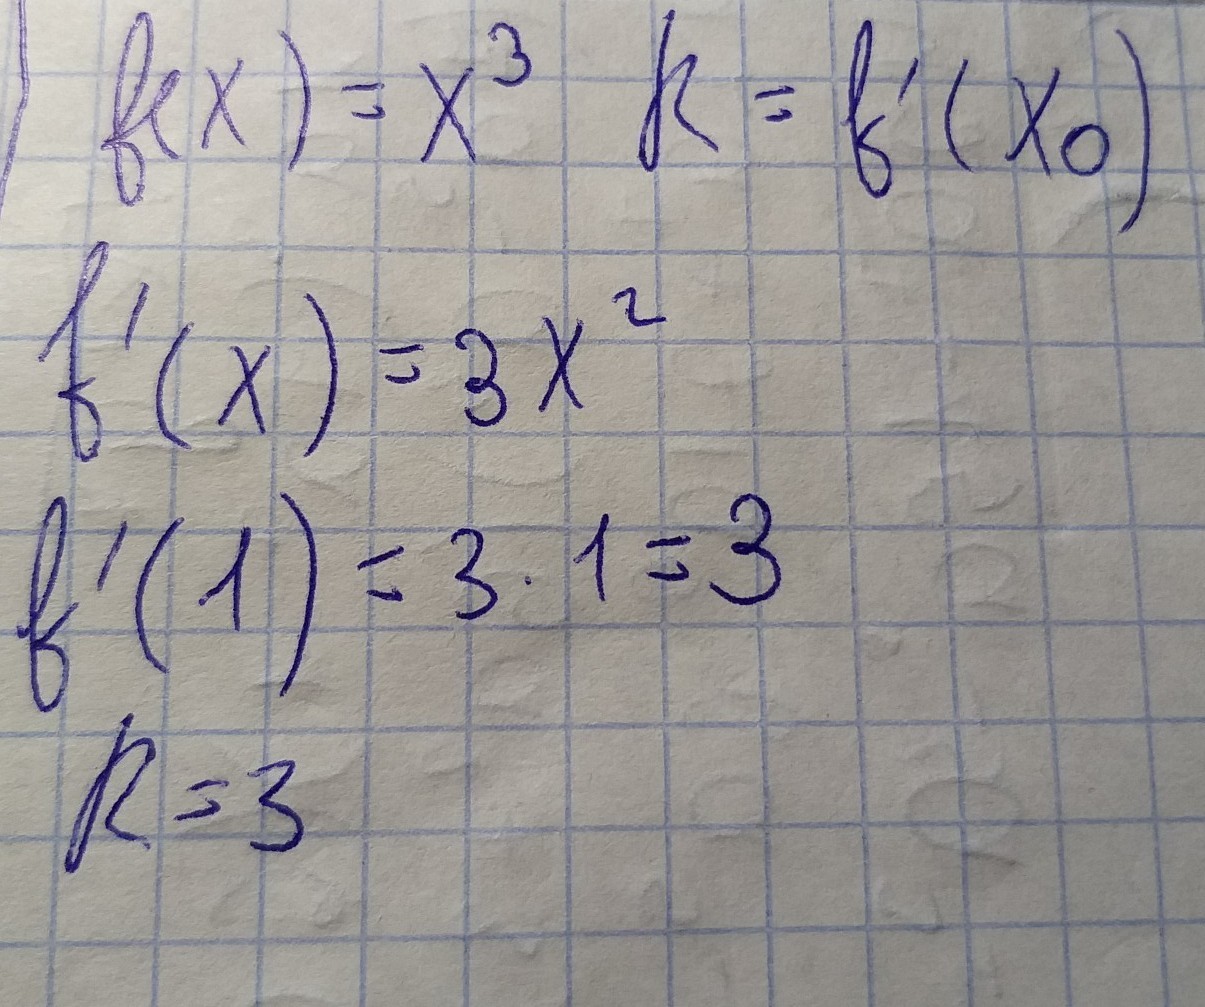 f(x) = x³ k = f'(x₀)
f'(x) = 3x²
f'(1) = 3 · 1 = 3
k = 3